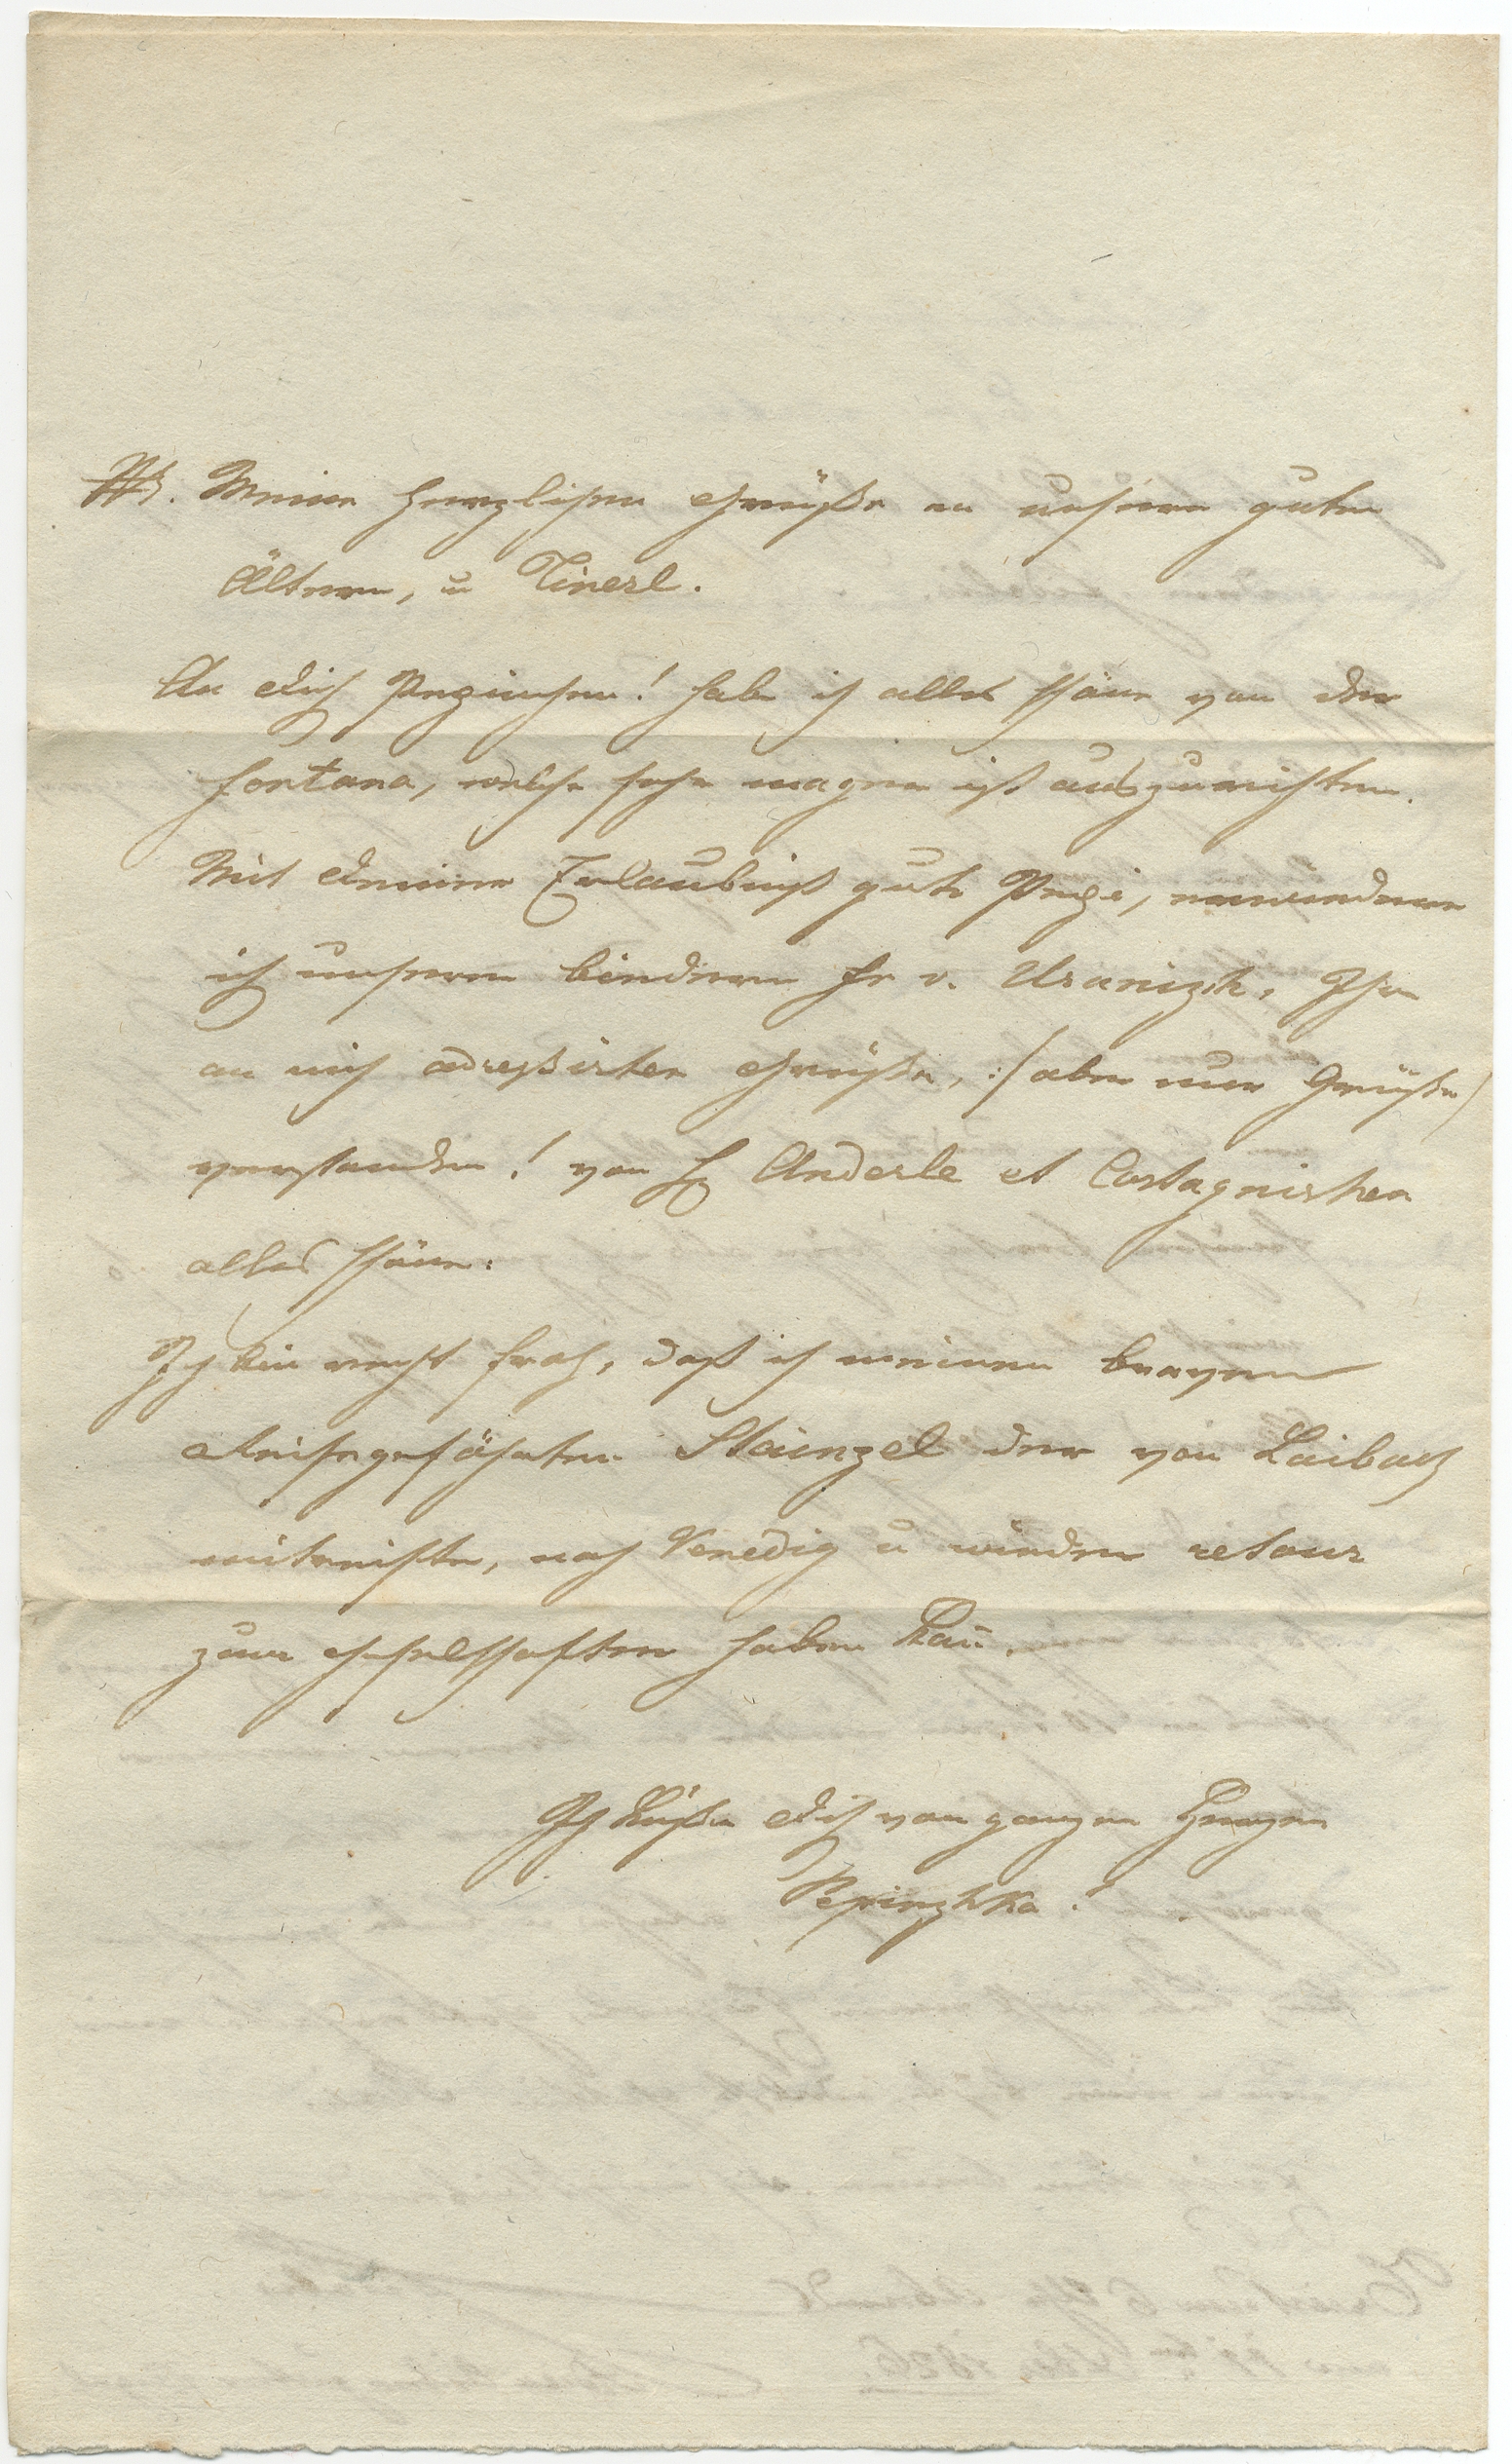 NB. Meine herzlichen Grüße an unsere guten
Ältern, u Tinerl.
An dich Pepinchen! habe ich alles schöne von der
Fontana, welche sehr mager ist auszurichten.
Mit deiner Erlaubniß gute Pepi, erwiedere
ich unserem biederen Hr v. Uranizh, Ihre
an mich adreßirten Grüße, :/aber nur Grüße/
verstanden! von H Anderle et Castagnischen
alles schöne:
Ich bin recht froh, daß ich meinen braven
Reisegefährten Stainzel der von Laibach
mitreiste, nach Venedig u wieder retour
zum Gesellschafter haben kan̄.
Ich küße dich von ganzen Herzen
Pepinzhka!